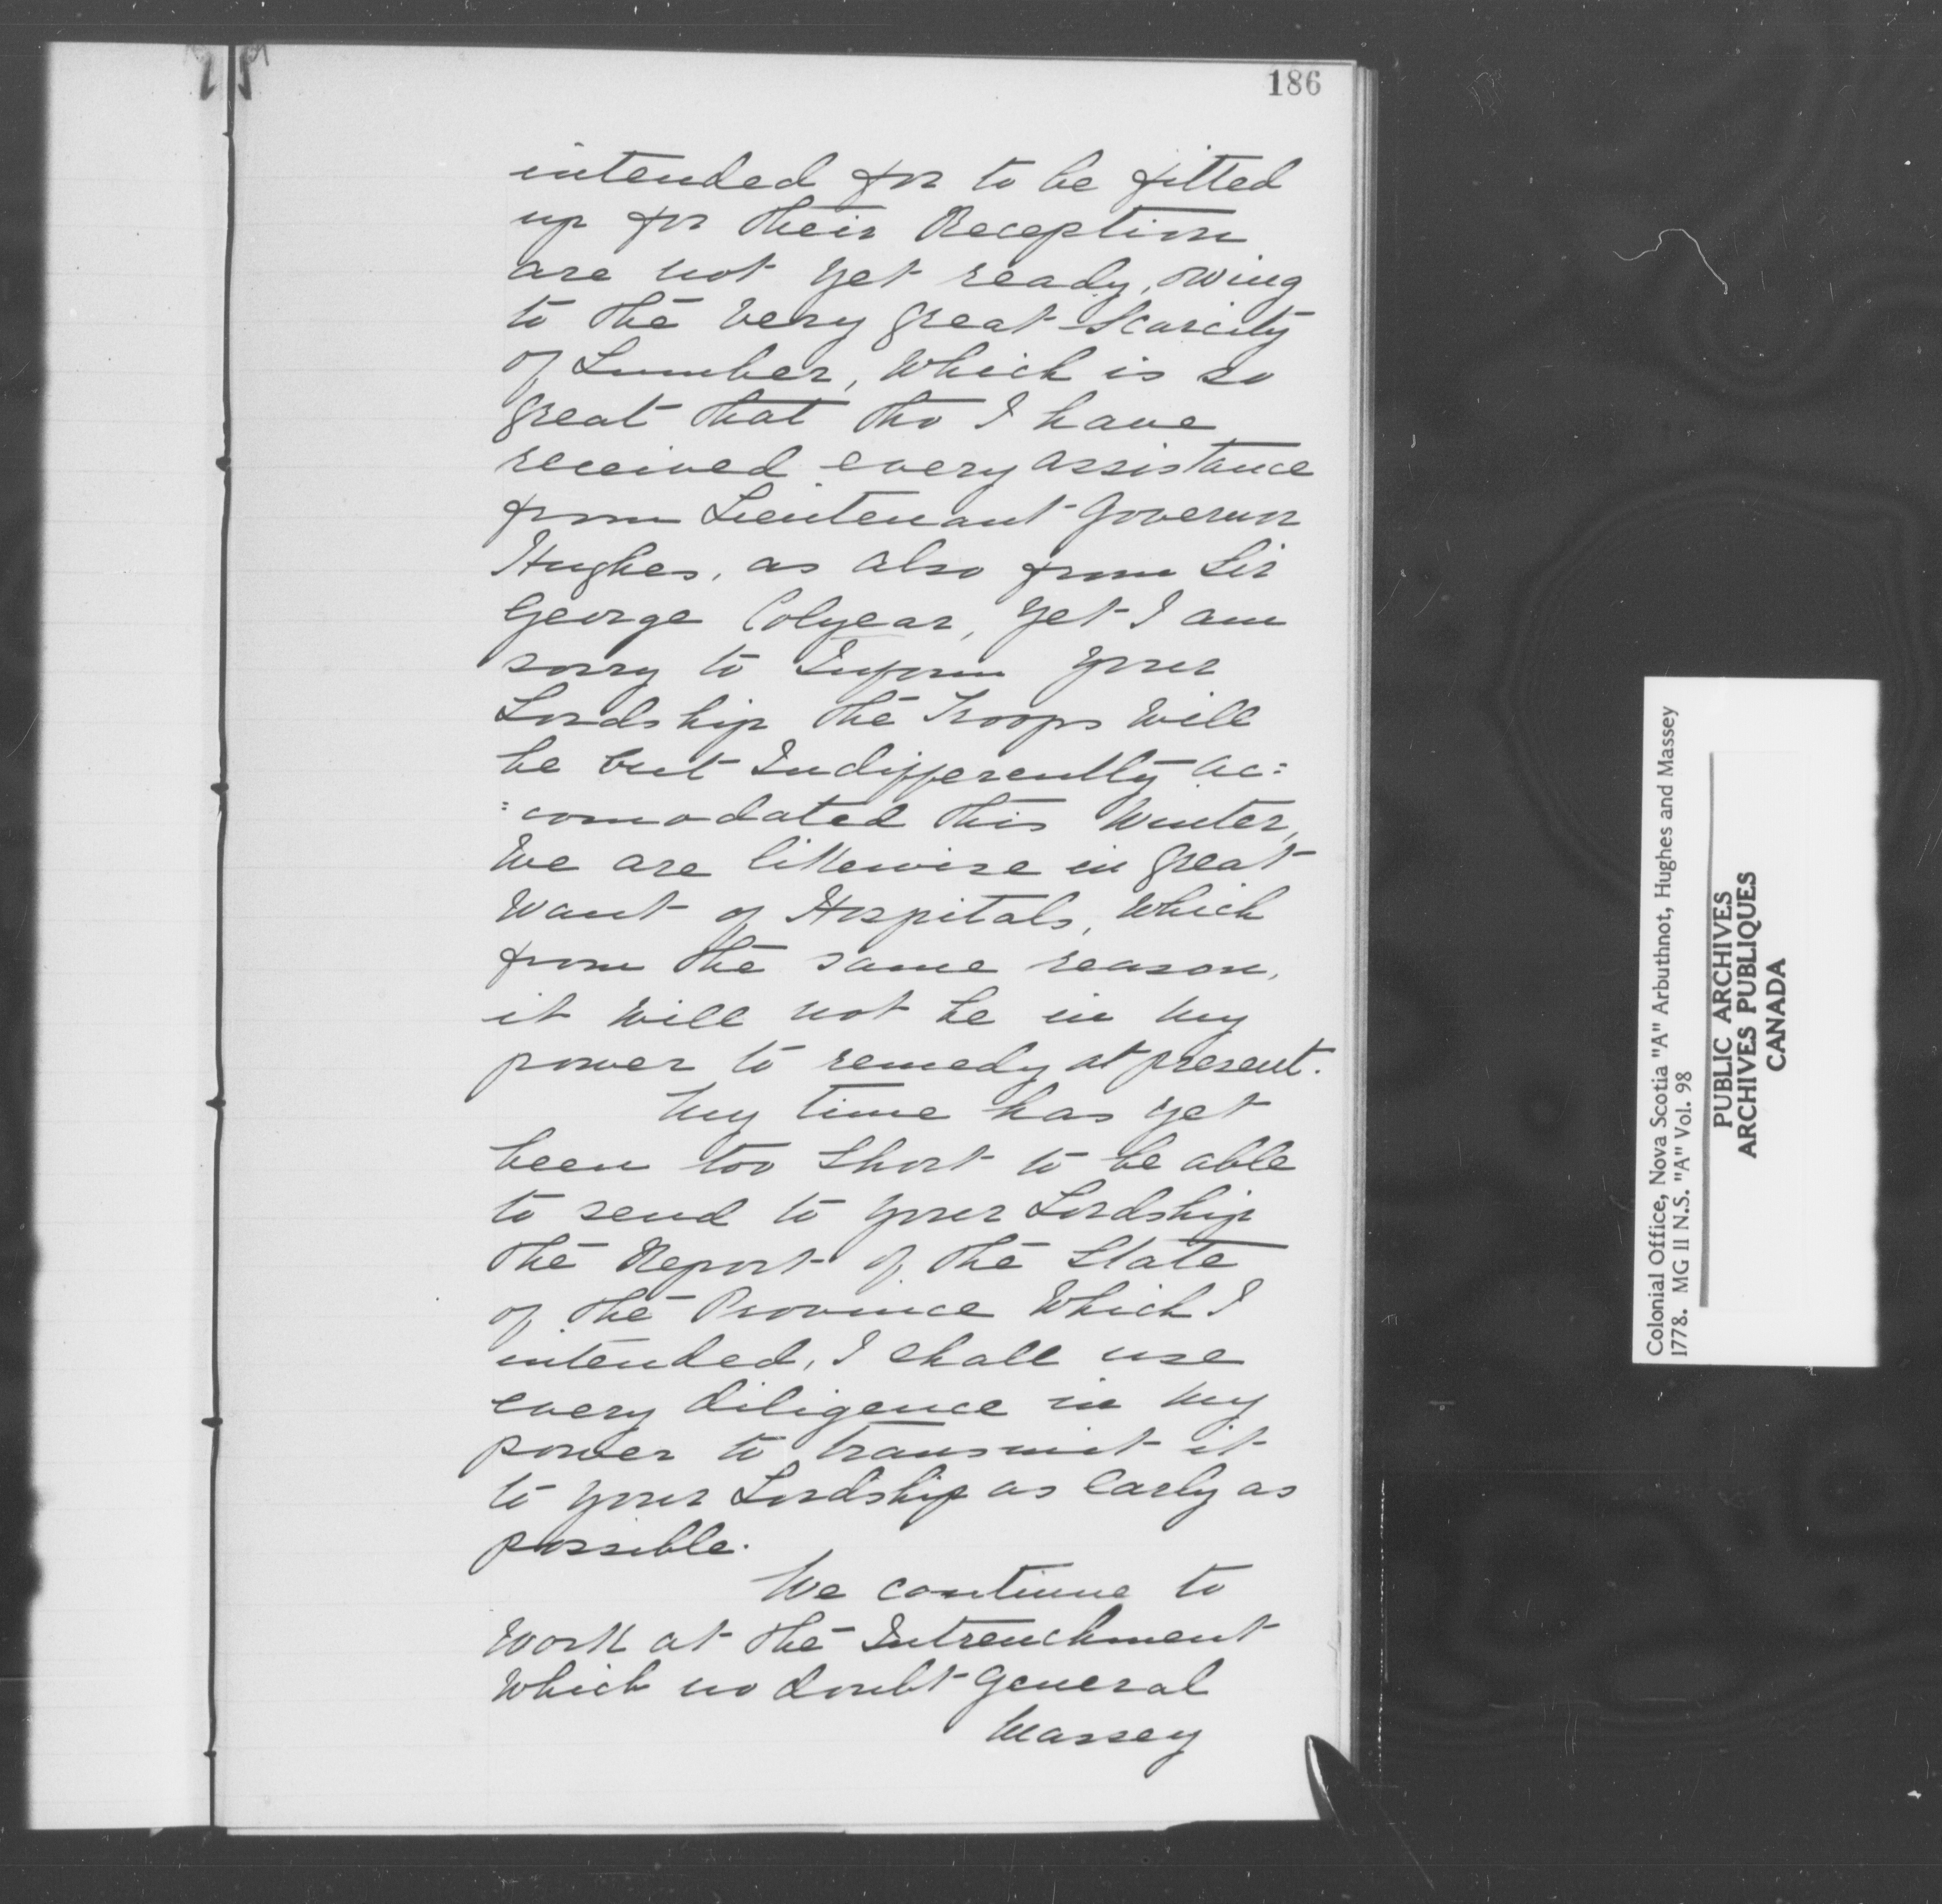 186
intended for to be fitted
up for their Reception
are not yet ready, owing
to the very great Scarcity
of Lumber, Which is so
great that tho I have
received every assistance
from Lieutenant Governor
Hughes, as also from Sir
George Colyear, yet I am
sorry to Inform your
Lordship the Troops Will
be but Indifferently ac:
:comodated this Winter,
We are likewise in great
Want of Hospitals, Which
from the same reason,
it Will not be in my
power to remedy at present.
My time has yet
been too Short to be able
to send to your Lordship
the Report of the State
of the Province Which I
intended, I shall use
every diligence in my
power to transmit it
to your Lordship as Early as
possible.
We continue to
Work at the Intrenchment
Which no doubt General
Massey
Colonial Office, Nova Scotia "A" Arbuthnot, Hughes and Massey
1778. MG II N.S. "A" Vol. 98
PUBLIC ARCHIVES
ARCHIVES PUBLIQUES
CANADA